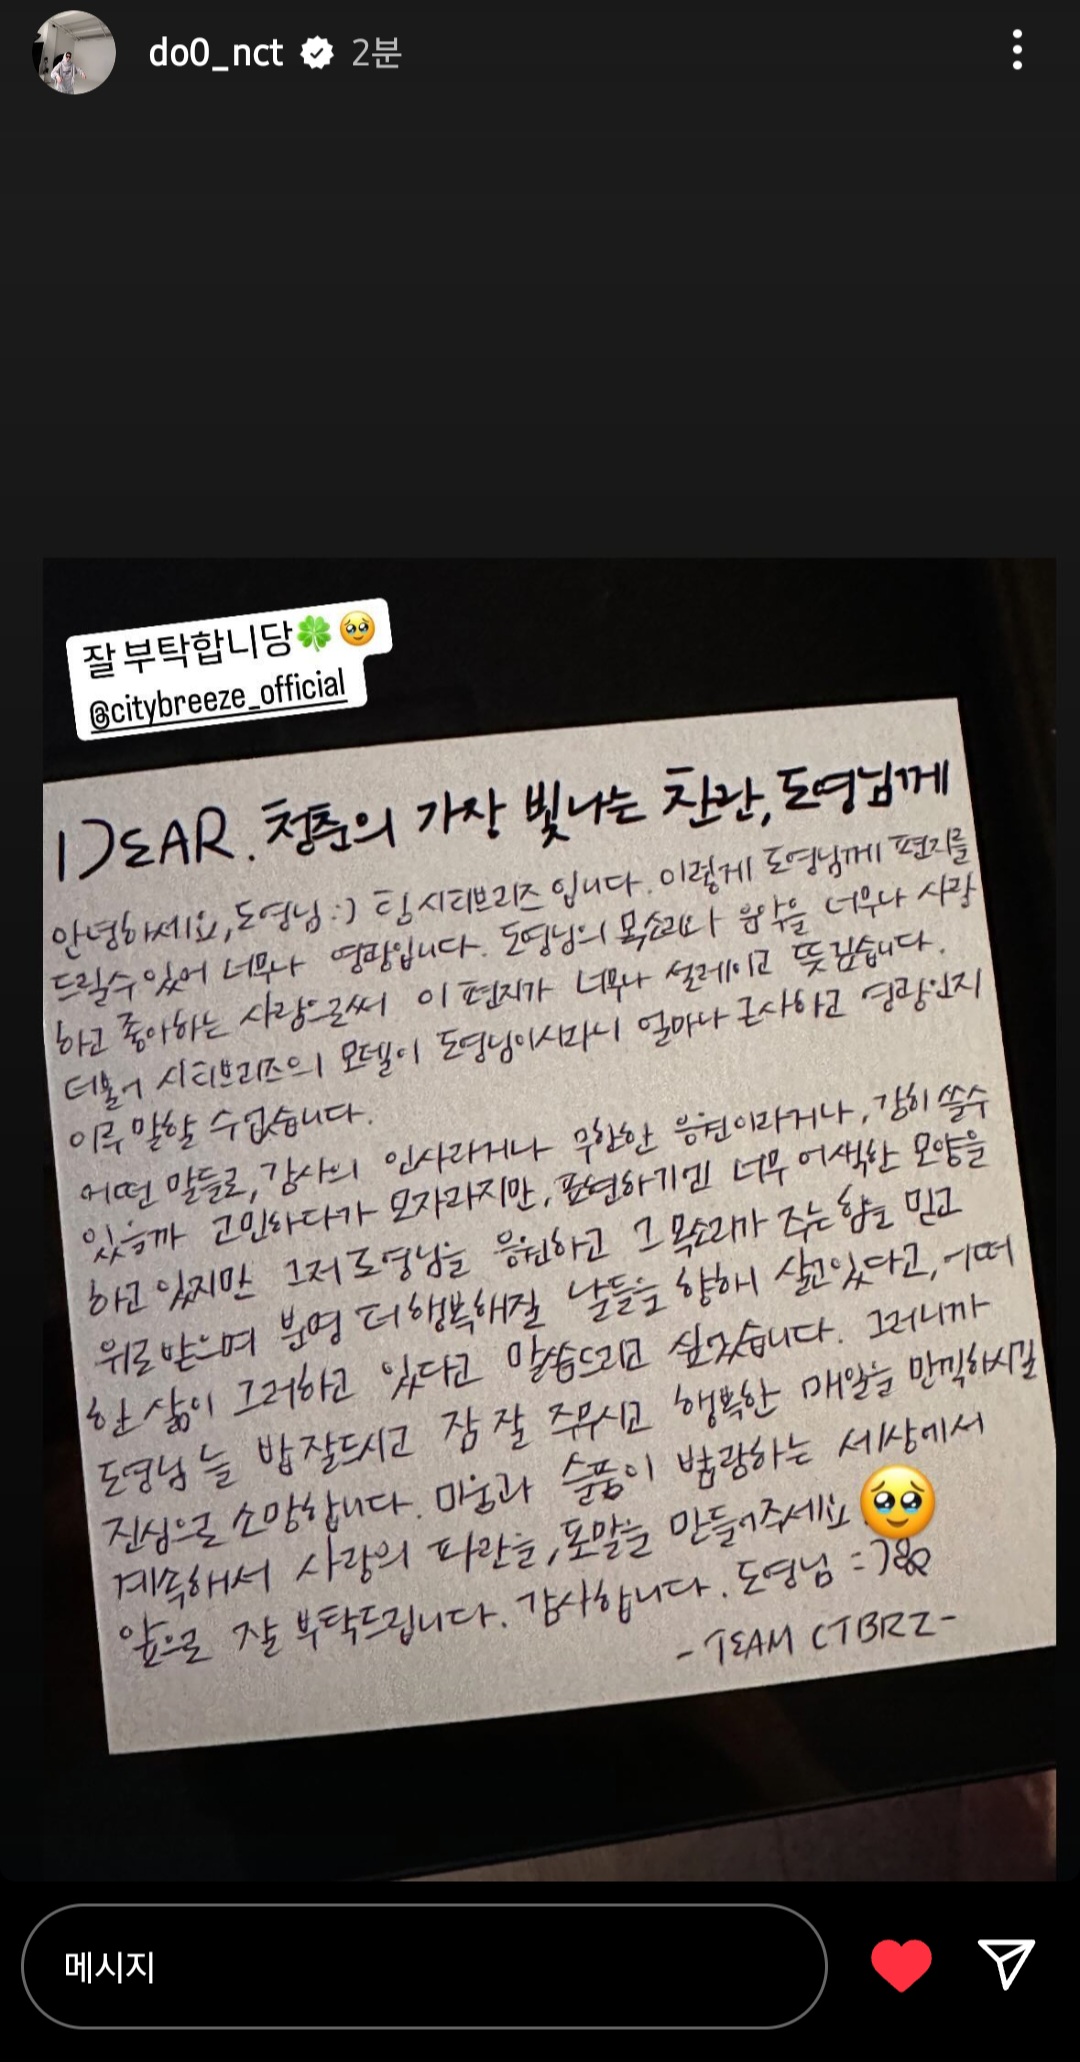 do0_nct 2분
잘 부탁합니당🍀🥹
@citybreeze_official
DEAR. 청춘의 가장 빛나는 찬란, 도영님께
안녕하세요, 도영님 :) 팀 시티브리즈 입니다. 이렇게 도영님께 편지를
드릴수 있어 너무나 영광입니다. 도영님의 목소리와 음악을 너무나 사랑
하고 좋아하는 사람으로써 이 편지가 너무나 설레이고 뜻깊습니다.
더불어 시티브리즈의 모델이 도영님이시라니 얼마나 근사하고 영광인지
이루 말할 수 없습니다.
어떤 말들로, 감사의 인사라거나 무한한 응원이라거나, 감히 쓸수
있을까 고민하다가 모자라지만, 표현하기엔 너무 어색한 모양을
하고 있지만 그저 도영님을 응원하고 그 목소리가 주는 힘을 믿고
위로 받으며 분명 더 행복해질 날들을 향해 살고있다고, 어떠
한 삶이 그러하고 있다고 말씀드리고 싶었습니다. 그러니까
도영님 늘 밥 잘드시고 잠 잘 주무시고 행복한 매일을 만끽하시길
진심으로 소망합니다. 미움과 슬픔이 범람하는 세상에서
계속해서 사랑의 파란을, 포말을 만들어주세요 🥹
앞으로 잘 부탁드립니다. 감사합니다. 도영님 =)
- TEAM CTBRZ -
메시지